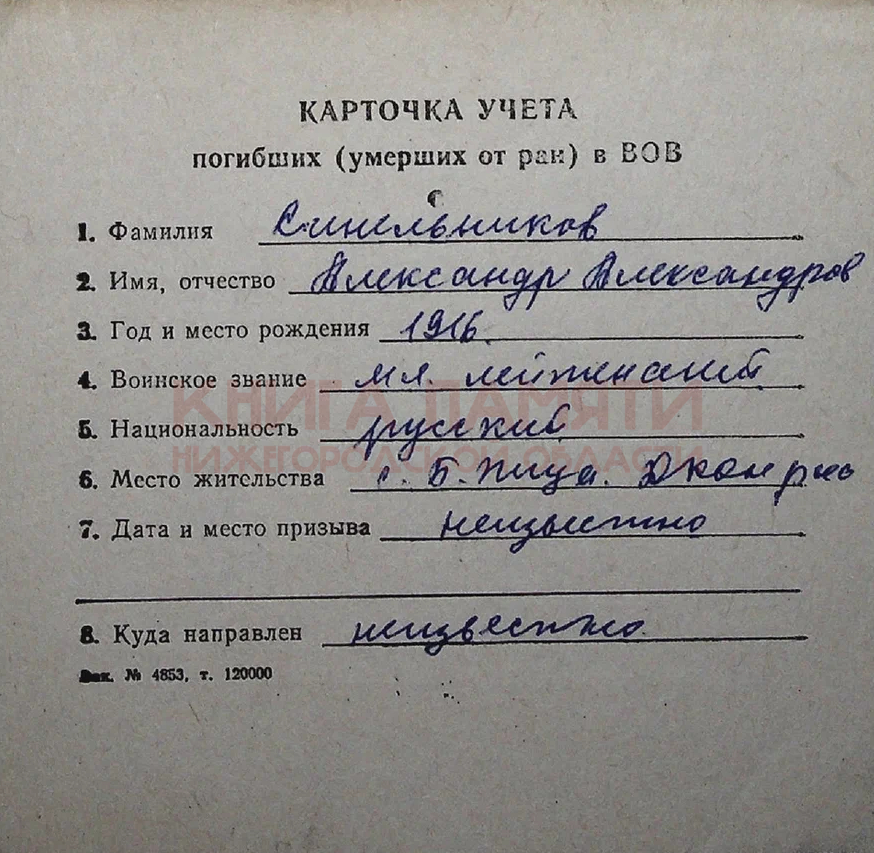 КАРТОЧКА УЧЕТА
погибших (умерших от ран) в ВОВ
1. Фамилия Синельников
2. Имя, отчество Александр Александров
3. Год и место рождения 1916.
4. Воинское звание мл. лейтенант
КНИГА ПАМЯТИ
5. Национальность русский
НИЖЕГОРОДСКОЙ ОБЛАСТИ
6. Место жительства с. Б. Пица.
7. Дата и место призыва неизвестно
8. Куда направлен неизвестно
Зак. № 4853, т. 120000